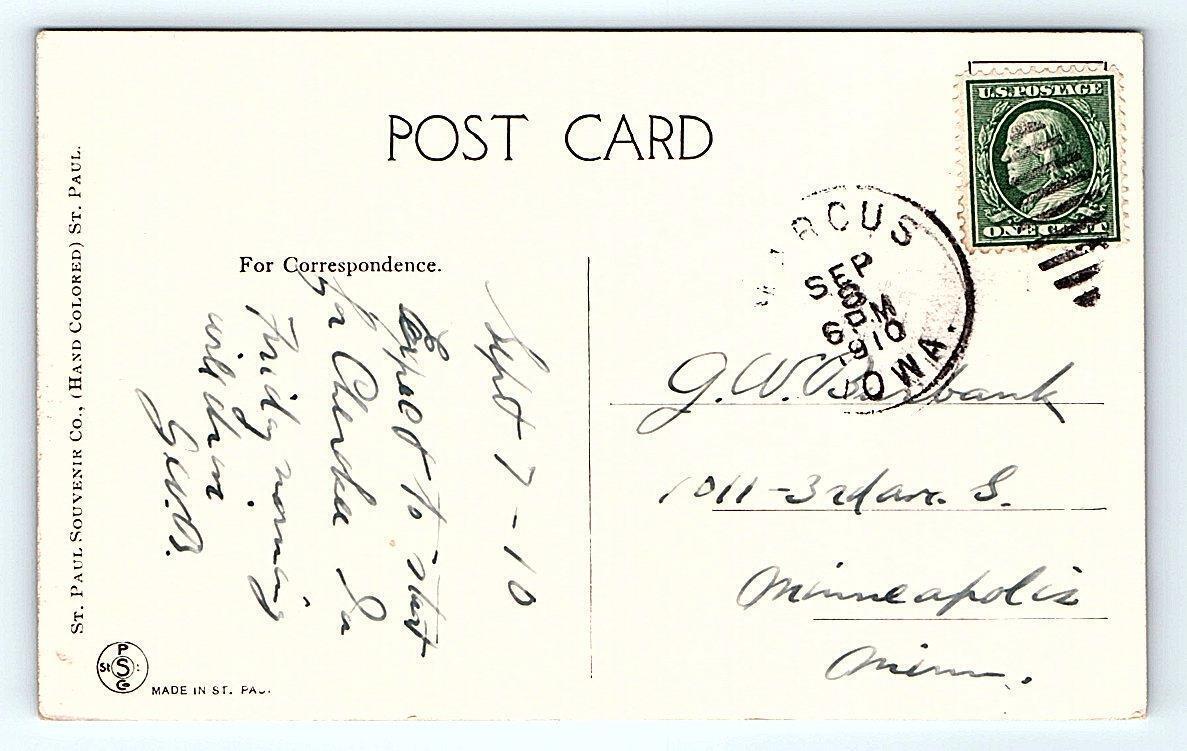 POST CARD
U.S. POSTAGE
ONE CENT
MARCUS
SEP
6
PM
1910
IOWA.
For Correspondence.
Sept 7-10
Expect to start
for Cherokee Ia
Friday morning
G.W.B.
G.W. Burbank
1011-3rd ave. S.
Minneapolis
Minn.
ST. PAUL SOUVENIR CO., (HAND COLORED) ST. PAUL.
St P S Co
MADE IN ST. PAUL.